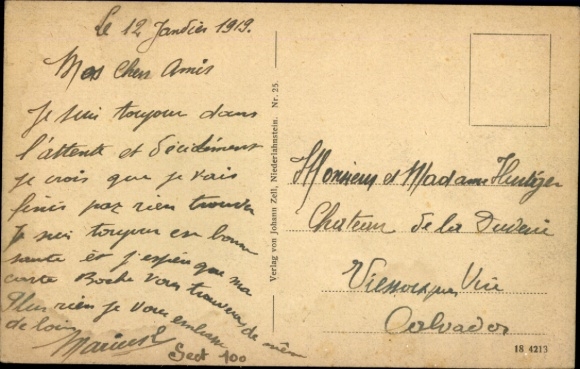 Le 12 Janvier 1919.
Mes Chers Amis
Je suis toujour dans
l'attente et décidément
je crois que je vais
finir par rien trouver
Je suis toujour en bonne
sante et j'espère que ma
carte Boche vous trouvera de même
Plus rien je vous embrasse
de loin
Sect 100
Verlag von Johann Zell, Niederlahnstein. Nr. 25.
Monsieur et Madame
Chateau de la
Vire
Calvados
18 4213